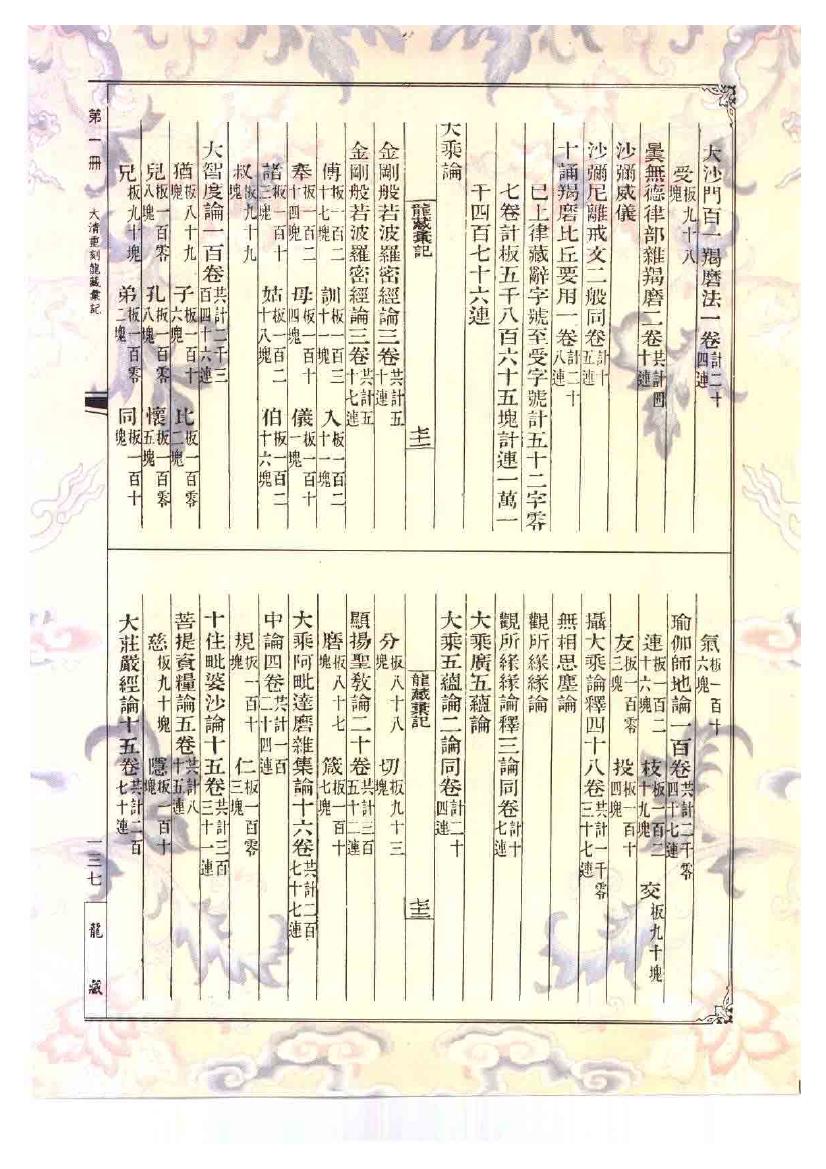 大沙門百一羯磨法一卷計二十四連
受板九十八塊
曇無德律部雜羯磨二卷共計四十連
沙彌威儀
沙彌尼離戒文二般同卷計十五連
十誦羯磨比丘要用一卷計二十八連
已上律藏辭字號至受字號計五十二字零
七卷計板五千八百六十五塊計連一萬一
千四百七十六連
大乘論
龍藏彙記
七十二
金剛般若波羅密經論三卷共計五十連
金剛般若波羅密經論三卷共計五十七連
傅板一百二十七塊 訓板一百三十塊 入板一百二十一塊
奉板一百二十四塊 母板一百十四塊 儀板一百十一塊
諸板一百十三塊 姑板一百二十八塊 伯板一百二十六塊
叔板九十九塊
大智度論一百卷共計二千三百四十六連
猶板八十九塊 子板一百十六塊 比板一百零二塊
兒板一百零八塊 孔板一百零八塊 懷板一百零五塊
兄板九十塊 弟板一百零二塊 同板一百十塊
氣板一百十六塊
瑜伽師地論一百卷共計二千零四十七連
連板一百二十六塊 枝板一百二十九塊 交板九十塊
友板一百零三塊 投板一百十四塊
攝大乘論釋四十八卷共計一千零三十七連
無相思塵論
觀所緣緣論
觀所緣緣論釋三論同卷計十七連
大乘廣五蘊論
大乘五蘊論二論同卷計二十四連
龍藏彙記
七十三
分板八十八塊 切板九十三塊
顯揚聖教論二十卷共計三百五十二連
磨板八十七塊 箴板一百十七塊
大乘阿毗達磨雜集論十六卷共計二百七十七連
中論四卷共計一百二十四連
規板一百十塊 仁板一百零三塊
十住毗婆沙論十五卷共計三百三十一連
菩提資糧論五卷共計八十五連
慈板九十塊 隱板一百十塊
大莊嚴經論十五卷共計二百七十連
第一冊 大清重刻龍藏彙記
一三七
龍藏